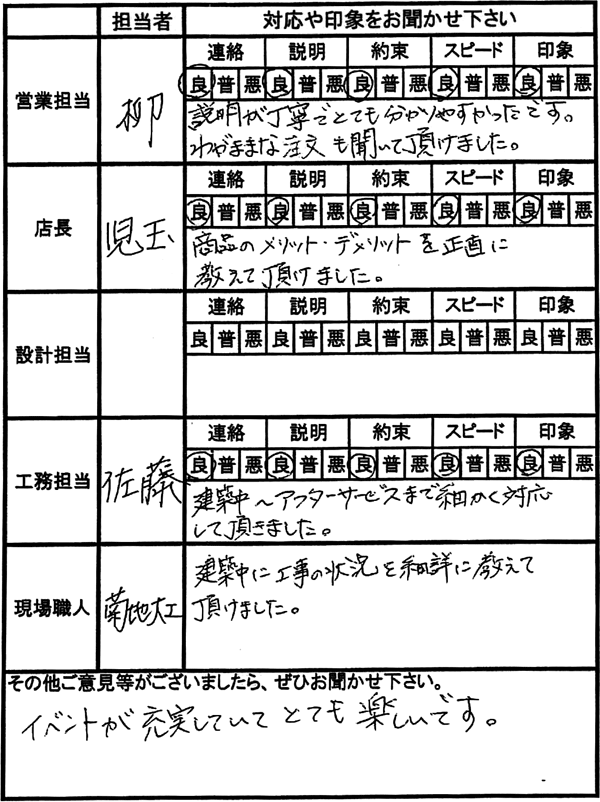 担当者 対応や印象をお聞かせ下さい
営業担当 柳
連絡 説明 約束 スピード 印象
良 普 悪 良 普 悪 良 普 悪 良 普 悪 良 普 悪
説明が丁寧でとても分かりやすかったです。
わがままな注文も聞いて頂けました。
店長 児玉
連絡 説明 約束 スピード 印象
良 普 悪 良 普 悪 良 普 悪 良 普 悪 良 普 悪
商品のメリット・デメリットを正直に
教えて頂けました。
設計担当
連絡 説明 約束 スピード 印象
良 普 悪 良 普 悪 良 普 悪 良 普 悪 良 普 悪
工務担当 佐藤
連絡 説明 約束 スピード 印象
良 普 悪 良 普 悪 良 普 悪 良 普 悪 良 普 悪
建築中～アフターサービスまで細かく対応
して頂きました。
現場職人 菊地大工
建築中に工事の状況を細詳に教えて
頂けました。
その他ご意見等がございましたら、ぜひお聞かせ下さい。
イベントが充実していてとても楽しいです。